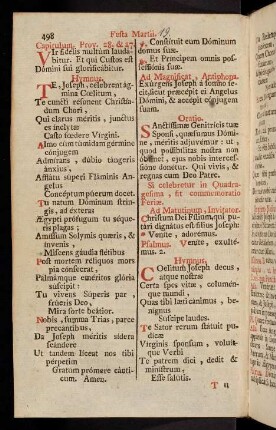 498
Festa Martii. 19
Capitulum, Prov. 28. & 27.
Vir fidelis multum laudabitur.
Et qui Custos est
Domini sui glorificabitur.
Hymnus.
TE, Joseph, celebrent agmina Cœlitum,
Te cuncti resonent Christiadum
Chori,
Qui clarus meritis, junctus
es inclytæ
Casto fœdere Virgini.
Almo cùm tumidam germine
conjugem
Admirans, dubio tangeris
anxius,
Afflatu superi Flaminis Angelus
Conceptum puerum docet.
Tu natum Dominum stringis,
ad exteras
Ægypti profugum tu sequeris
plagas;
Amissum Solymis quæris, &
invenis,
Miscens gaudia fletibus
Post mortem reliquos mors
pia consecrat,
Palmamque emeritos gloria
suscipit:
Tu vivens Superis par,
frueris Deo,
Mira sorte beatior.
Nobis, summa Trias, parce
precantibus,
Da Joseph meritis sidera
scandere
Ut tandem liceat nos tibi
perpetim
Gratum promere canticum.
Amen.
℣. Constituit eum Dominum
domus suæ.
℟. Et Principem omnis possessionis
suæ.
Ad Magnificat, Antiphona.
Exurgens Joseph à somno fecit,
sicut præcepit ei Angelus
Domini, & accepit conjugem
suam.
Oratio.
Sanctissimæ Genitricis tuæ
Sponsi, quæsumus Domine,
meritis adjuvemur: ut
quod possibilitas nostra non
obtinet, ejus nobis intercessione
donetur. Qui vivis, &
regnas cum Deo Patre.
Si celebretur in Quadragesima,
fit commemoratio
Feriæ.
Ad Matutinum, Invitator.
Christum Dei Filium, qui putari
dignatus est filius Joseph
* Venite, adoremus.
Psalmus. Venite, exultemus.
2.
Hymnus.
Cœlitum Joseph decus,
atque nostræ
Certa spes vitæ, columenque
mundi,
Quas tibi læti canimus, benignus
Suscipe laudes.
Te Sator rerum statuit pudicæ
Virginis sponsum, voluitque
Verbi
Te patrem dici, dedit &
ministrum,
Esse salutis.